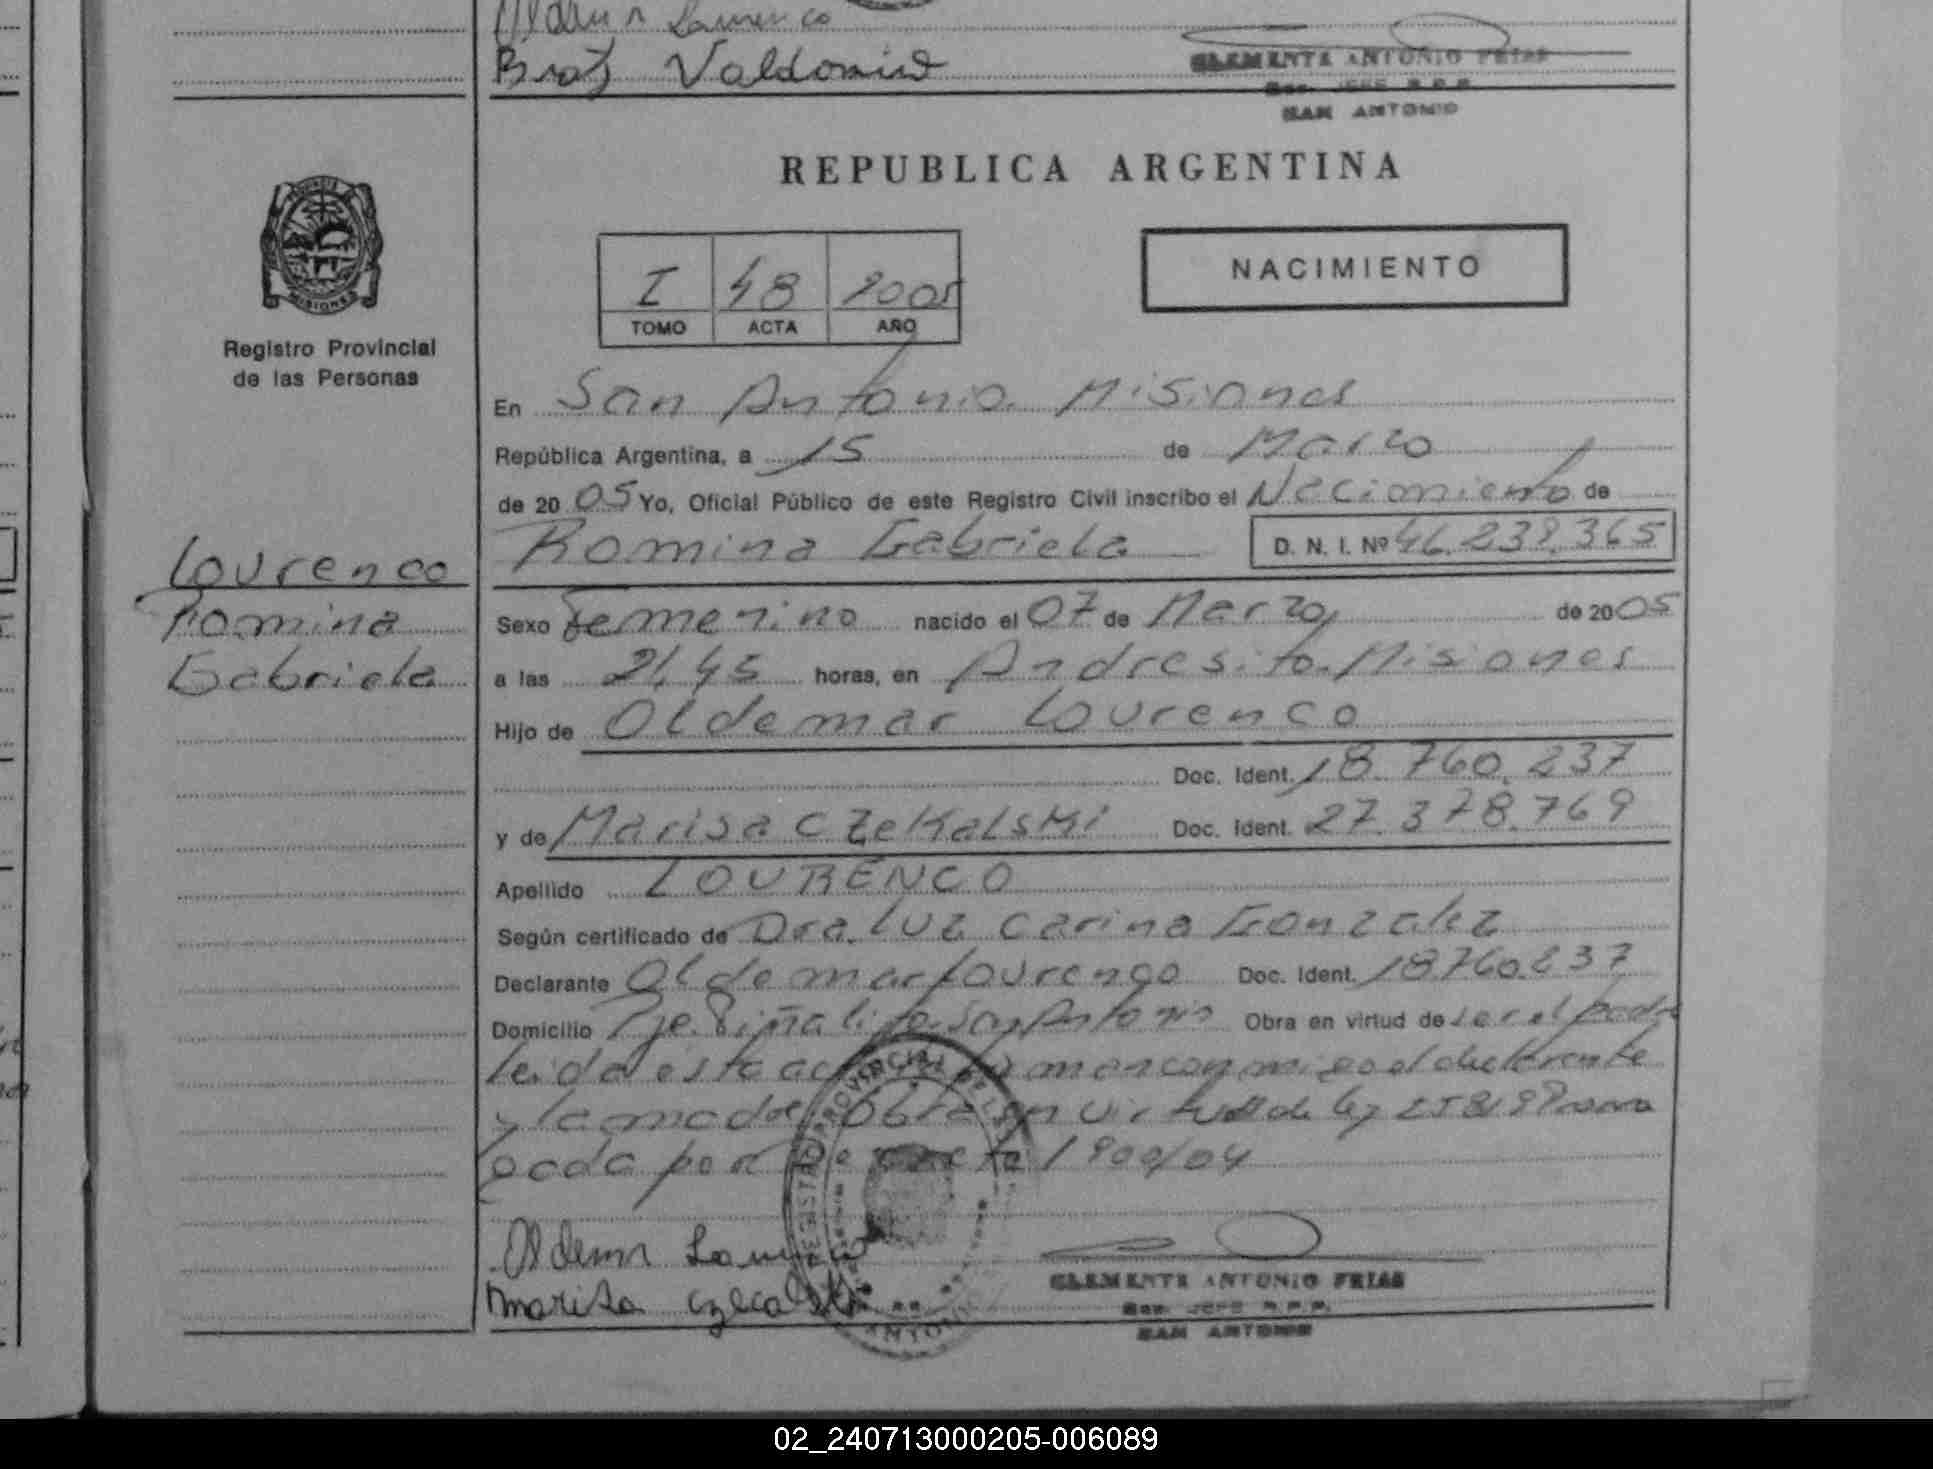 Oldemir Lourenco
Valdomiro
CLEMENTE ANTONIO FRIAS
SAN ANTONIO
REPUBLICA ARGENTINA
MISIONES
I 48 2005
TOMO ACTA AÑO
NACIMIENTO
Registro Provincial
de las Personas
En San Antonio. Misiones
República Argentina, a 15 de Marzo
de 2005 Yo, Oficial Público de este Registro Civil inscribo el Nacimiento de
Romina Gabriela D. N. I. Nº 46.239.365
Lourenco
Romina
Gabriela
Sexo Femenino nacido el 07 de Marzo de 2005
a las 21,45 horas, en Andresito. Misiones
Hijo de Oldemar Lourenco
Doc. Ident. 18.760.237
y de Marisa Czekalski Doc. Ident. 27.378.769
Apellido LOURENCO
Según certificado de Dra. Luz Carina Gonzalez
Declarante Oldemar Lourenco Doc. Ident. 18760.237
Domicilio Pje. Piñalito San Antonio Obra en virtud de ser el padre
leida esta acta firman conmigo el declarante
y la madre Obra en virtud de ley 25819 Prorro
gada por Decreto 1900/04
Marisa
CLEMENTE ANTONIO FRIAS
SAN ANTONIO
02_240713000205-006089